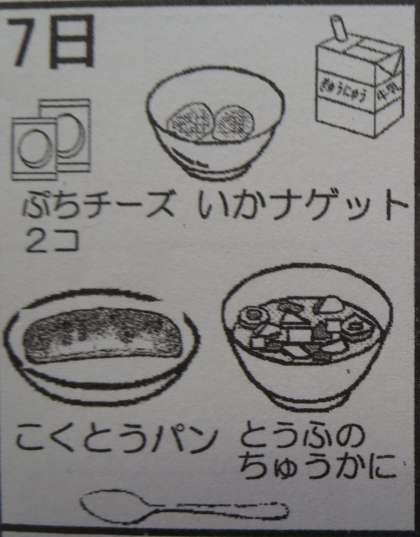 7日
ぎゅうにゅう
ぷちチーズ いかナゲット
2コ
こくとうパン とうふの
ちゅうかに